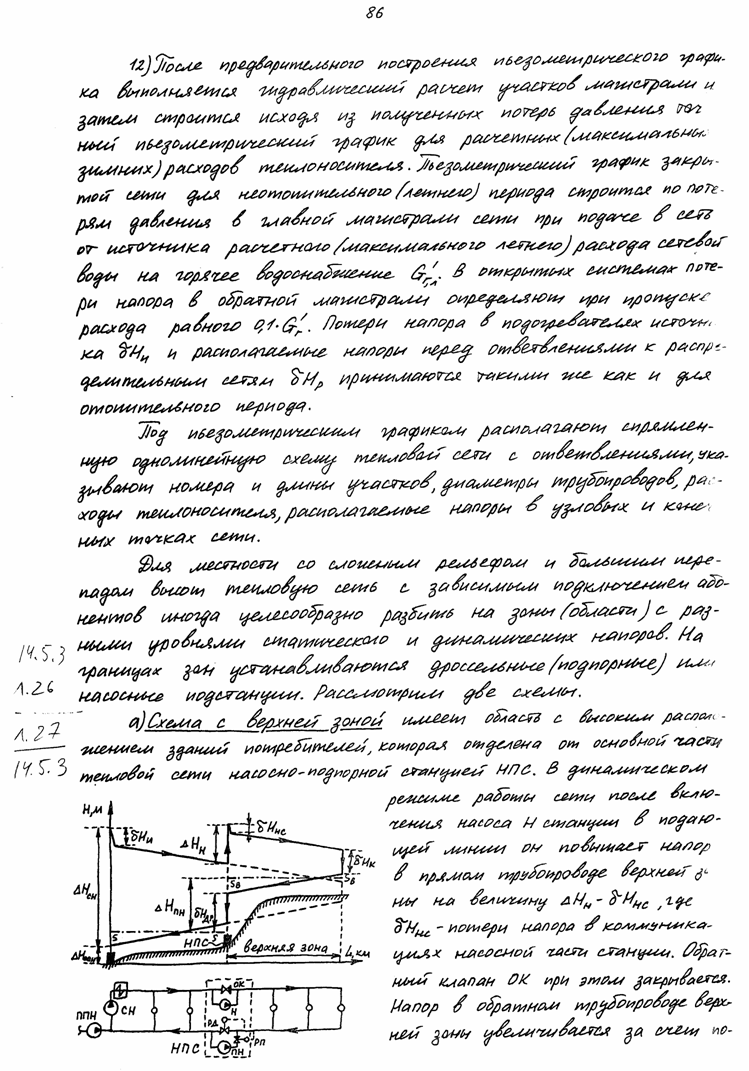 86
12) После предварительного построения пьезометрического графи-
ка выполняется гидравлический расчет участков магистрали и
затем строится исходя из полученных потерь давления точ
ный пьезометрический график для расчетных (максимальны
зимних) расходов теплоносителя. Пьезометрический график закры-
той сети для неотопительного (летнего) периода строится по поте-
рям давления в главной магистрали сети при подаче в сеть
от источника расчетного (максимального летнего) расхода сетевой
воды на горячее водоснабжение G'г,л. В открытых системах поте-
ри напора в обратной магистрали определяют при пропуске
расхода равного 0,1·G'г. Потери напора в подогревателях источни-
ка δHи и располагаемые напоры перед ответвлениями к распре-
делительным сетям δHр принимаются такими же как и для
отопительного периода.
Под пьезометрическим графиком располагают спрямлен-
ную однолинейную схему тепловой сети с ответвлениями, ука-
зывают номера и длины участков, диаметры трубопроводов, рас-
ходы теплоносителя, располагаемые напоры в узловых и конеч
ных точках сети.
Для местности со сложным рельефом и большим пере-
падом высот тепловую сеть с зависимым подключением або-
нентов иногда целесообразно разбить на зоны (области) с раз-
14.5.3 ными уровнями статического и динамических напоров. На
границах зон устанавливаются дроссельные (подпорные) или
1.26 насосные подстанции. Рассмотрим две схемы.
1.27 а) Схема с верхней зоной имеет область с высоким распол-
жением зданий потребителей, которая отделена от основной части
14.5.3 тепловой сети насосно-подпорной станцией НПС. В динамическом
режиме работы сети после вклю-
чения насоса Н станции в подаю-
щей линии он повышает напор
в прямом трубопроводе верхней зо
ны на величину ΔHн-δHнс, где
δHнс-потери напора в коммуника-
циях насосной части станции. Обрат-
ный клапан ОК при этом закрывается.
Напор в обратном трубопроводе верх-
ней зоны увеличивается за счет по-
H,м
δHи
ΔHн
δHнс
δHк
ΔHсн
ΔHпн
δHдр
Sв
Sв
S
S
НПС
верхняя зона
L, км
ΔHппн
ОК
Н
СН
ППН
РД
РП
ПН
НПС